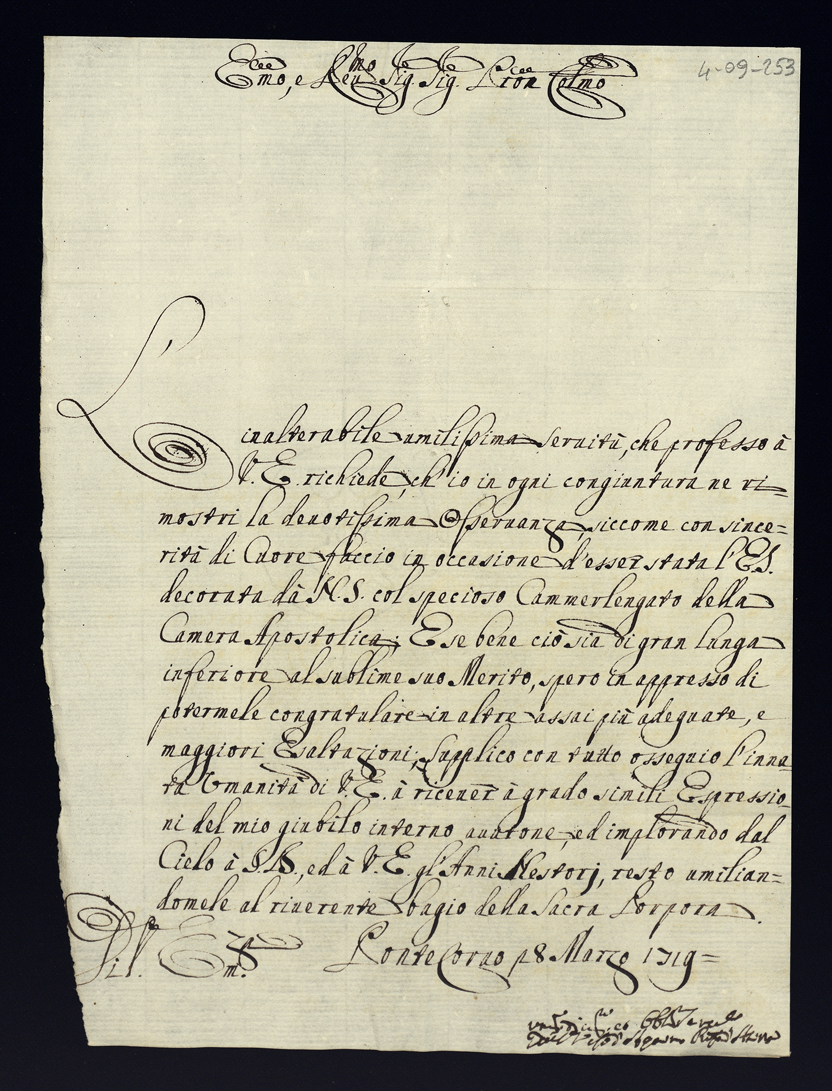 4-09-253
Emo, e Reu.mo Sig. Sig. Pron Colmo
L'inalterabile umilissima seruitù, che professo à
V. E. richiede, ch'io in ogni congiuntura ne ri=
mostri la deuotissima Osseruanza, siccome con since=
rità di Cuore faccio in occasione d'esser stata l'E.S.
decorata dà N.S. col specioso Cammerlengato della
Camera Apostolica; E se bene ciò sia di gran lunga
inferiore al sublime suo Merito, spero in appresso di
potermele congratulare in altre assai più adeguate, e
maggiori Esaltazioni; Supplico con tutto ossequio l'inna
ta Umanità di V. E. à riceuer à grado simili Espressio
ni del mio giubilo interno auutone, ed implorando dal
Cielo à S.B., ed à V. E. gl'Anni Nestorj, restò umilian=
domele al riuerente bagio della Sacra Porpora.
Di V. Em.za Ponte Coruo p.8 Marzo 1719=